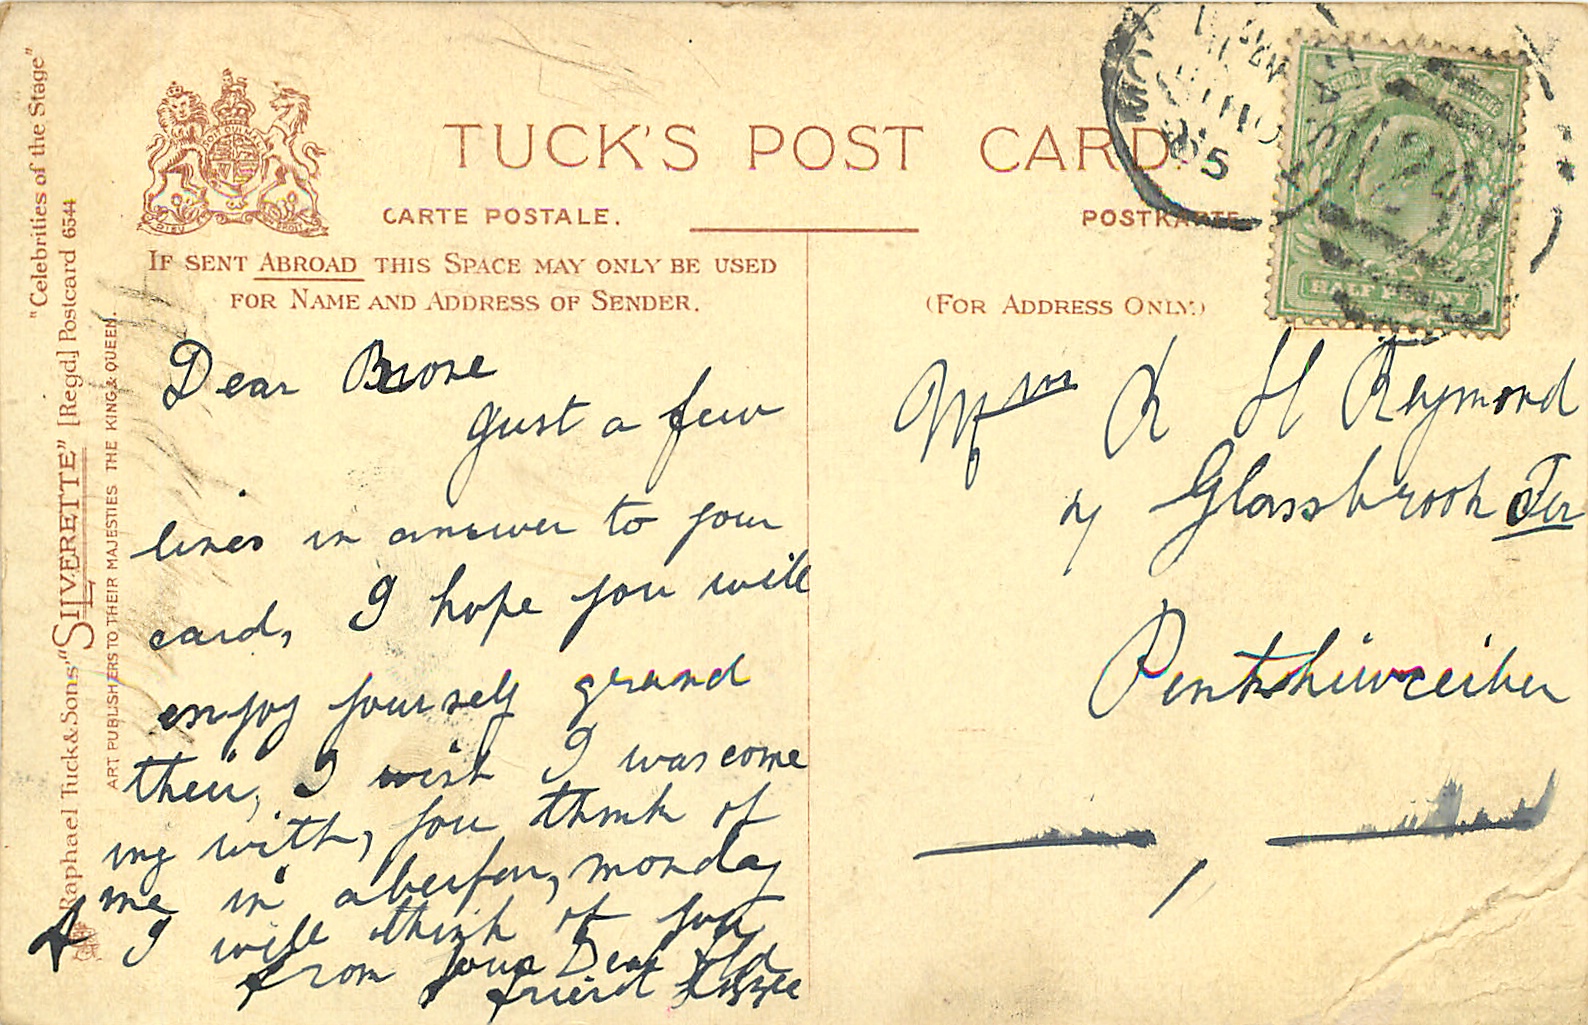 "Celebrities of the Stage"
Raphael Tuck & Sons' "SILVERETTE" [Regd.] Postcard 6544
ART PUBLISHERS TO THEIR MAJESTIES THE KING & QUEEN.
TUCK'S POST CARD
CARTE POSTALE.
POSTKARTE
IF SENT ABROAD THIS SPACE MAY ONLY BE USED
FOR NAME AND ADDRESS OF SENDER.
(FOR ADDRESS ONLY.)
HALF PENNY
05
Dear
Just a few
lines in answer to your
card, I hope you will
enjoy yourself grand
their, I wish I was come
ing with, you think of
me in aberfan, monday
& I will think of you
from your Dear old
friend Lizzie
K H Reymond
Glassbrook Ter